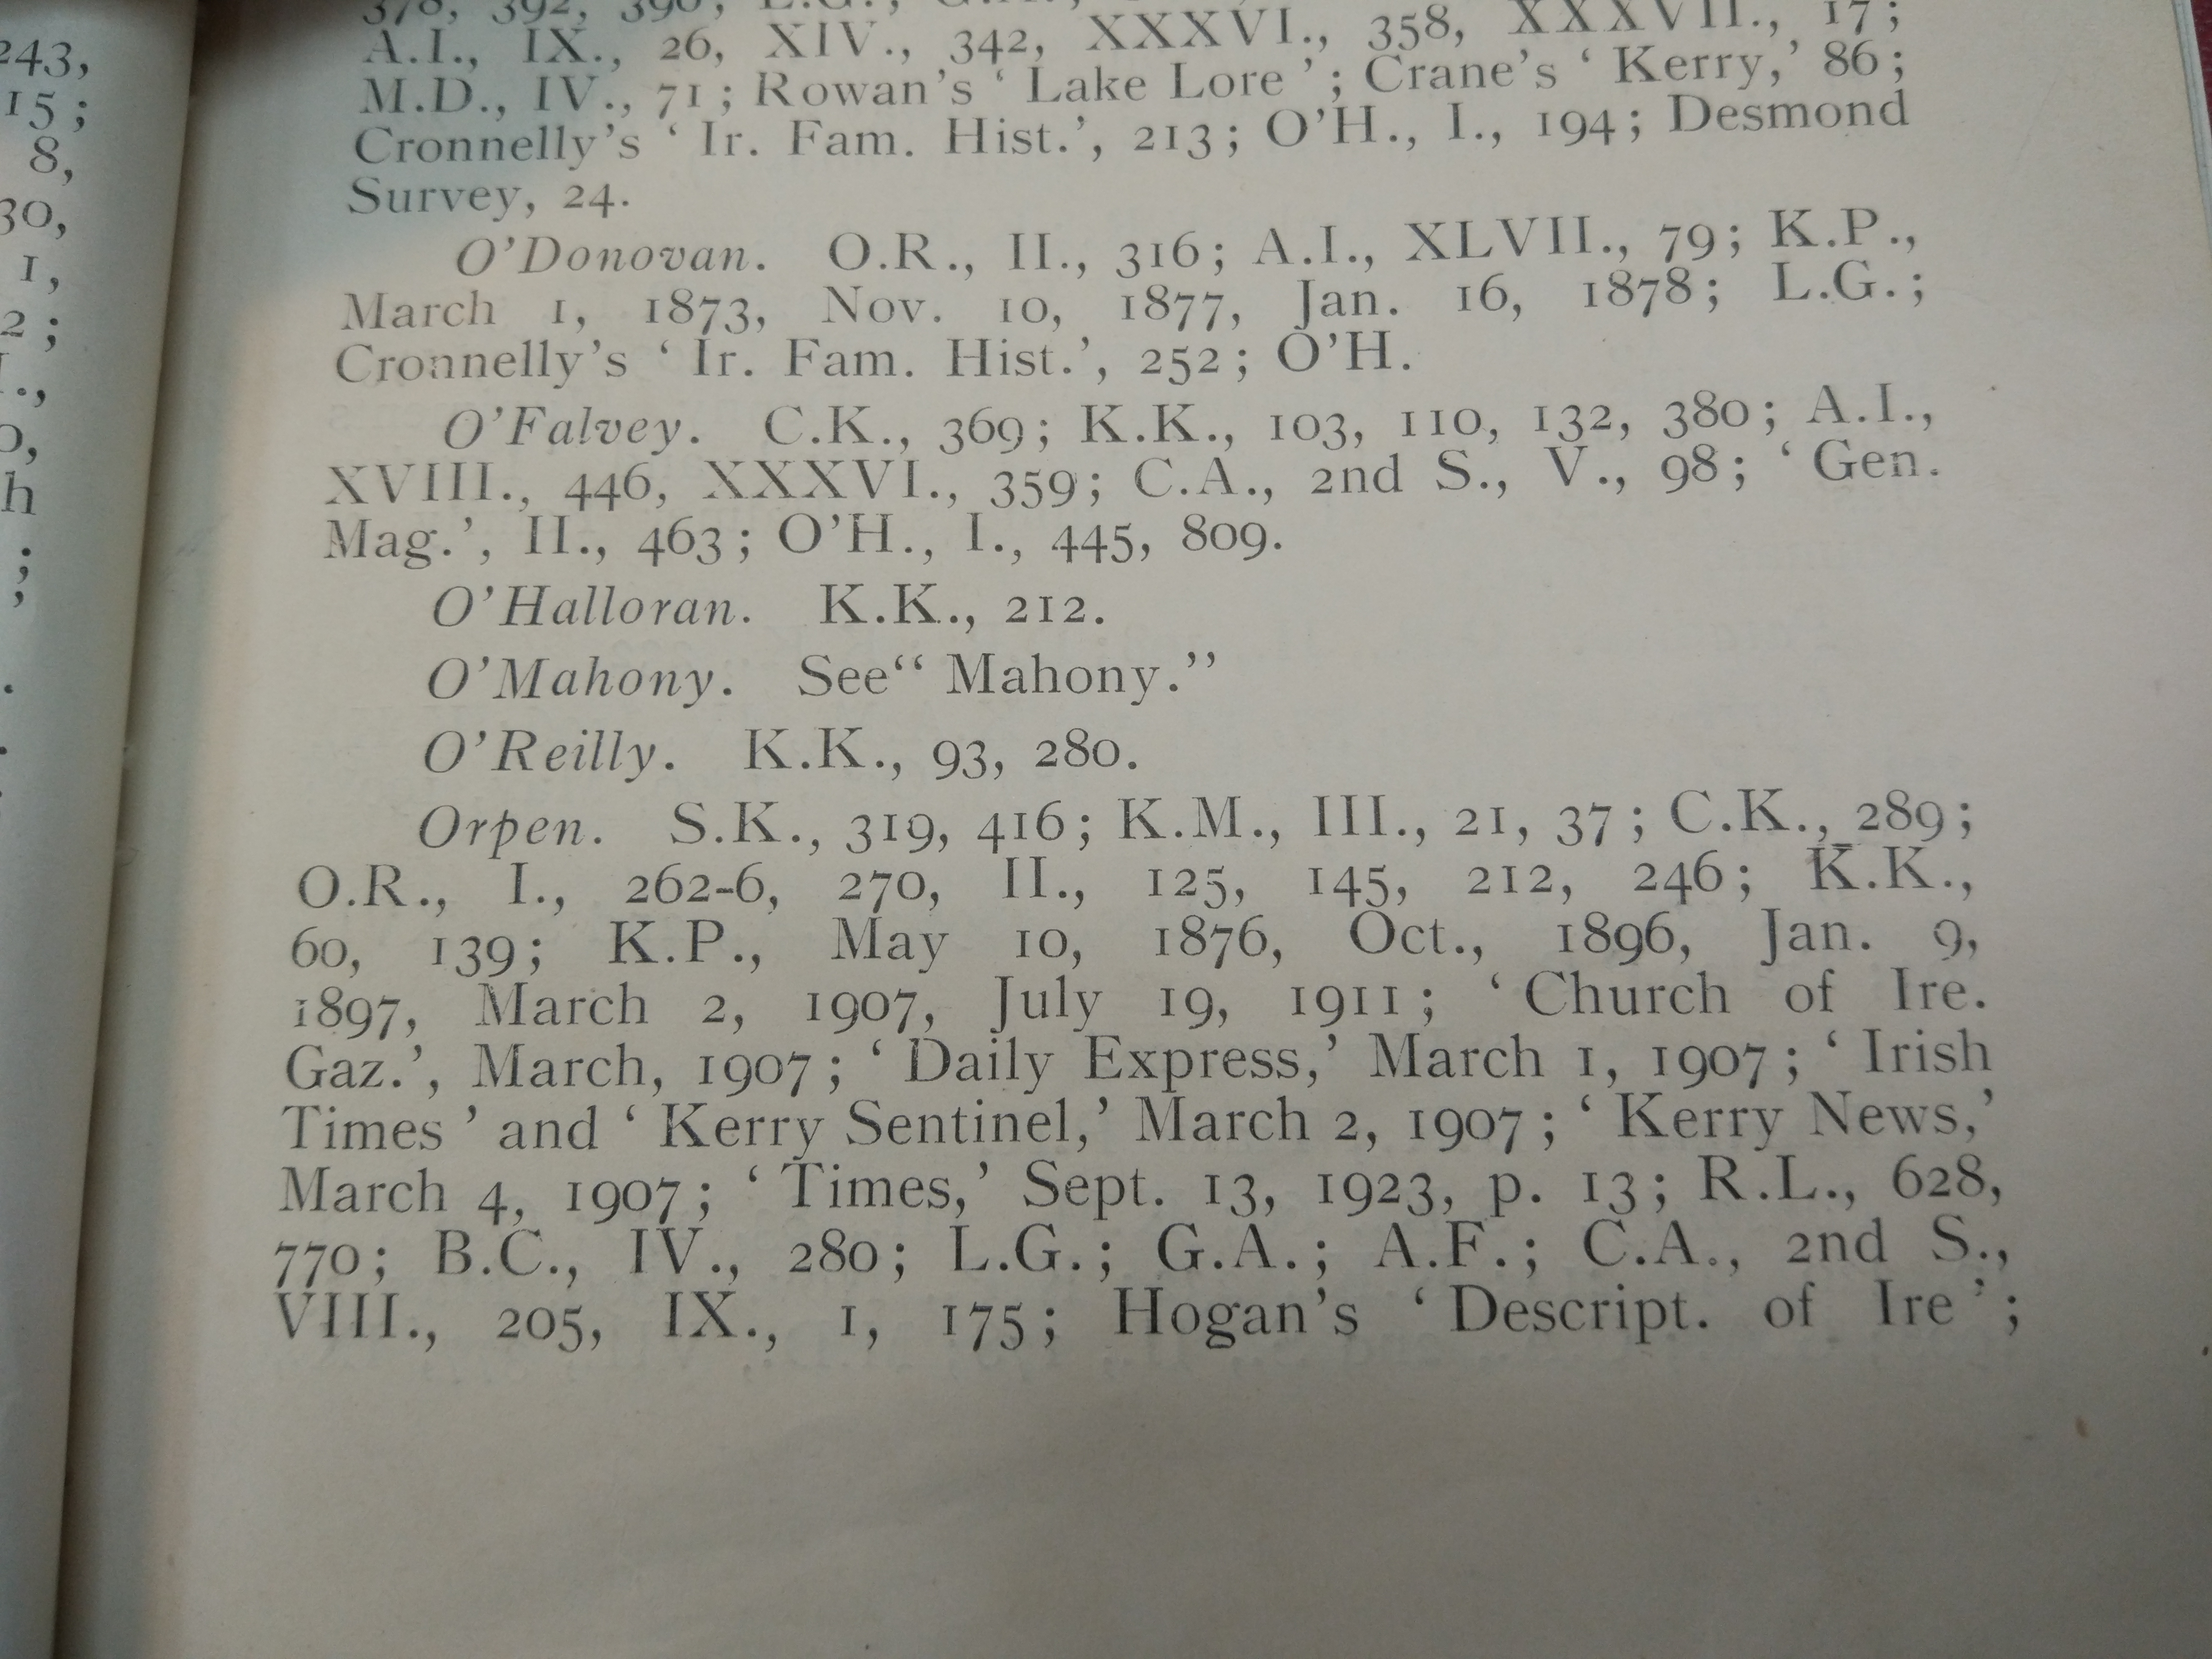 243,
15;
8,
30,
1,
2;
h
;
378, 392, 390, L.G.; G.A.,
A.I., IX., 26, XIV., 342, XXXVI., 358, XXXVII., 17;
M.D., IV., 71; Rowan's ‘Lake Lore’; Crane's ‘Kerry,’ 86;
Cronnelly's ‘Ir. Fam. Hist.’, 213; O'H., I., 194; Desmond
Survey, 24.
O'Donovan. O.R., II., 316; A.I., XLVII., 79; K.P.,
March 1, 1873, Nov. 10, 1877, Jan. 16, 1878; L.G.;
Cronnelly's ‘Ir. Fam. Hist.’, 252; O'H.
O'Falvey. C.K., 369; K.K., 103, 110, 132, 380; A.I.,
XVIII., 446, XXXVI., 359; C.A., 2nd S., V., 98; ‘Gen.
Mag.’, II., 463; O'H., I., 445, 809.
O'Halloran. K.K., 212.
O'Mahony. See“ Mahony.”
O'Reilly. K.K., 93, 280.
Orpen. S.K., 319, 416; K.M., III., 21, 37; C.K., 289;
O.R., I., 262-6, 270, II., 125, 145, 212, 246; K.K.,
60, 139; K.P., May 10, 1876, Oct., 1896, Jan. 9,
1897, March 2, 1907, July 19, 1911; ‘Church of Ire.
Gaz.’, March, 1907; ‘Daily Express,’ March 1, 1907; ‘Irish
Times’ and ‘Kerry Sentinel,’ March 2, 1907; ‘Kerry News,’
March 4, 1907; ‘Times,’ Sept. 13, 1923, p. 13; R.L., 628,
770; B.C., IV., 280; L.G.; G.A.; A.F.; C.A., 2nd S.,
VIII., 205, IX., 1, 175; Hogan's ‘Descript. of Ire’;